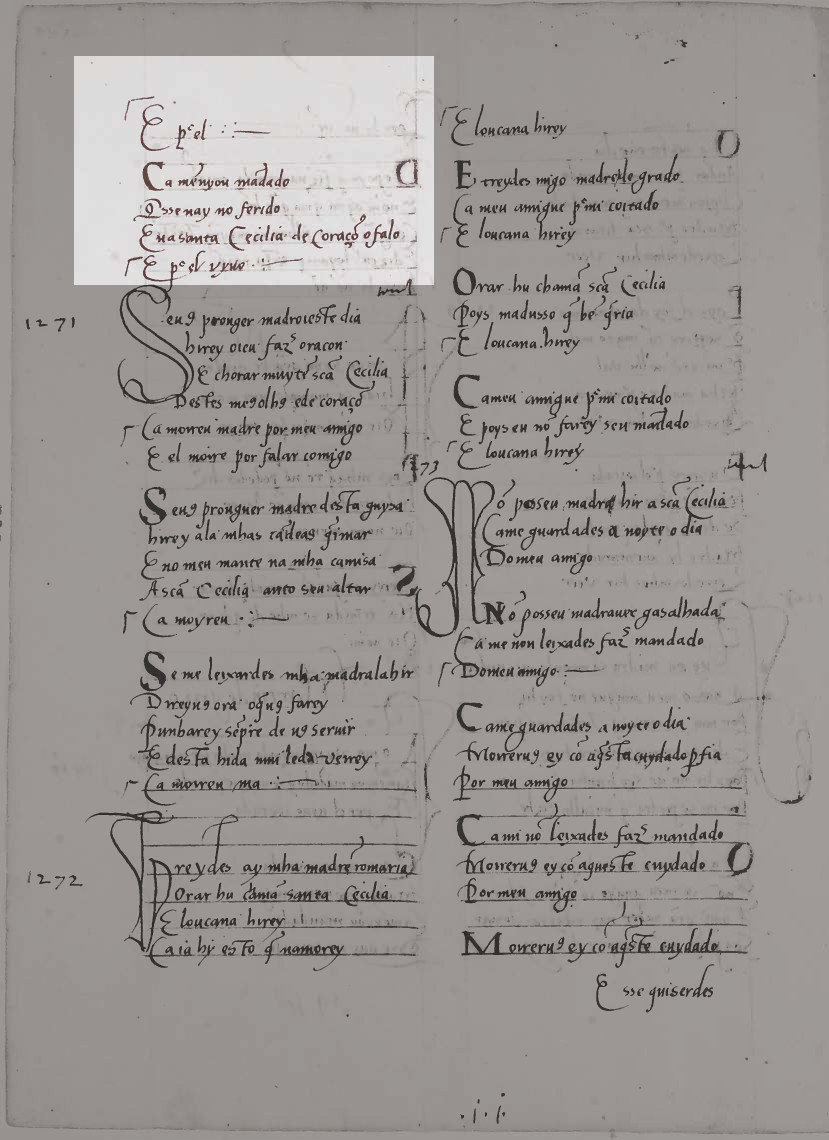 E per el
Ca mēnyou madado
Esse nay no ferido
Ena santa Cecilia de coraçō o falo
E per el vyuo
1271
Seuꝯ prouger madroieste dia
hirey oieu faz oracon
E chorar muyte scā Cecilia
Destes meꝯ olhꝯ e de coraçō
Ca moireu madre por meu amigo
E el moire por falar comigo
Seuꝯ prouguer madre desta guysa
hirey ala mhas cādeas q̄imar
E no meu mante na mha camisa
A scā Cecilia anto seu altar
Ca moyreu
Se me leixardes mha madralahir
Direyuꝯ ora o q̄ uꝯ farey
Punharey sēpre de uꝯ seruir
E desta hida mui leda verrey
Ca moireu ma
1272
Treydes ay mha madre romaria
Orar hu chamā santa Cecilia
E loucana hirey
Ca ia hy esto q̄ namorey
E loucana hirey
E treydes migo madre de grado
Ca meu amigue per mi coitado
E loucana hirey
Orar hu chamā scā Cecilia
Poys madusso q̄ bē q̄ria
E loucana hirey
Ca meu amigue per mi coitado
E poys eu nō farey seu mandado
E loucana hirey
1273
Nō posseu madre hir a scā Cecilia
Came guardades a noyte o dia
Do meu amigo
Nō posseu madrauer gasalhado
Ca me non leixades faz mandado
Do meu amigo
Came guardades a noyte o dia
Moireruꝯ ey cō aq̄sta cuydado ꝑfia
Por meu amigo
Ca mi nō leixades faz mandado
Moireruꝯ ey cō aqueste cuydado
Por meu amigo
Moireruꝯ ey cō aq̄ste cuydado
E sse quiserdes